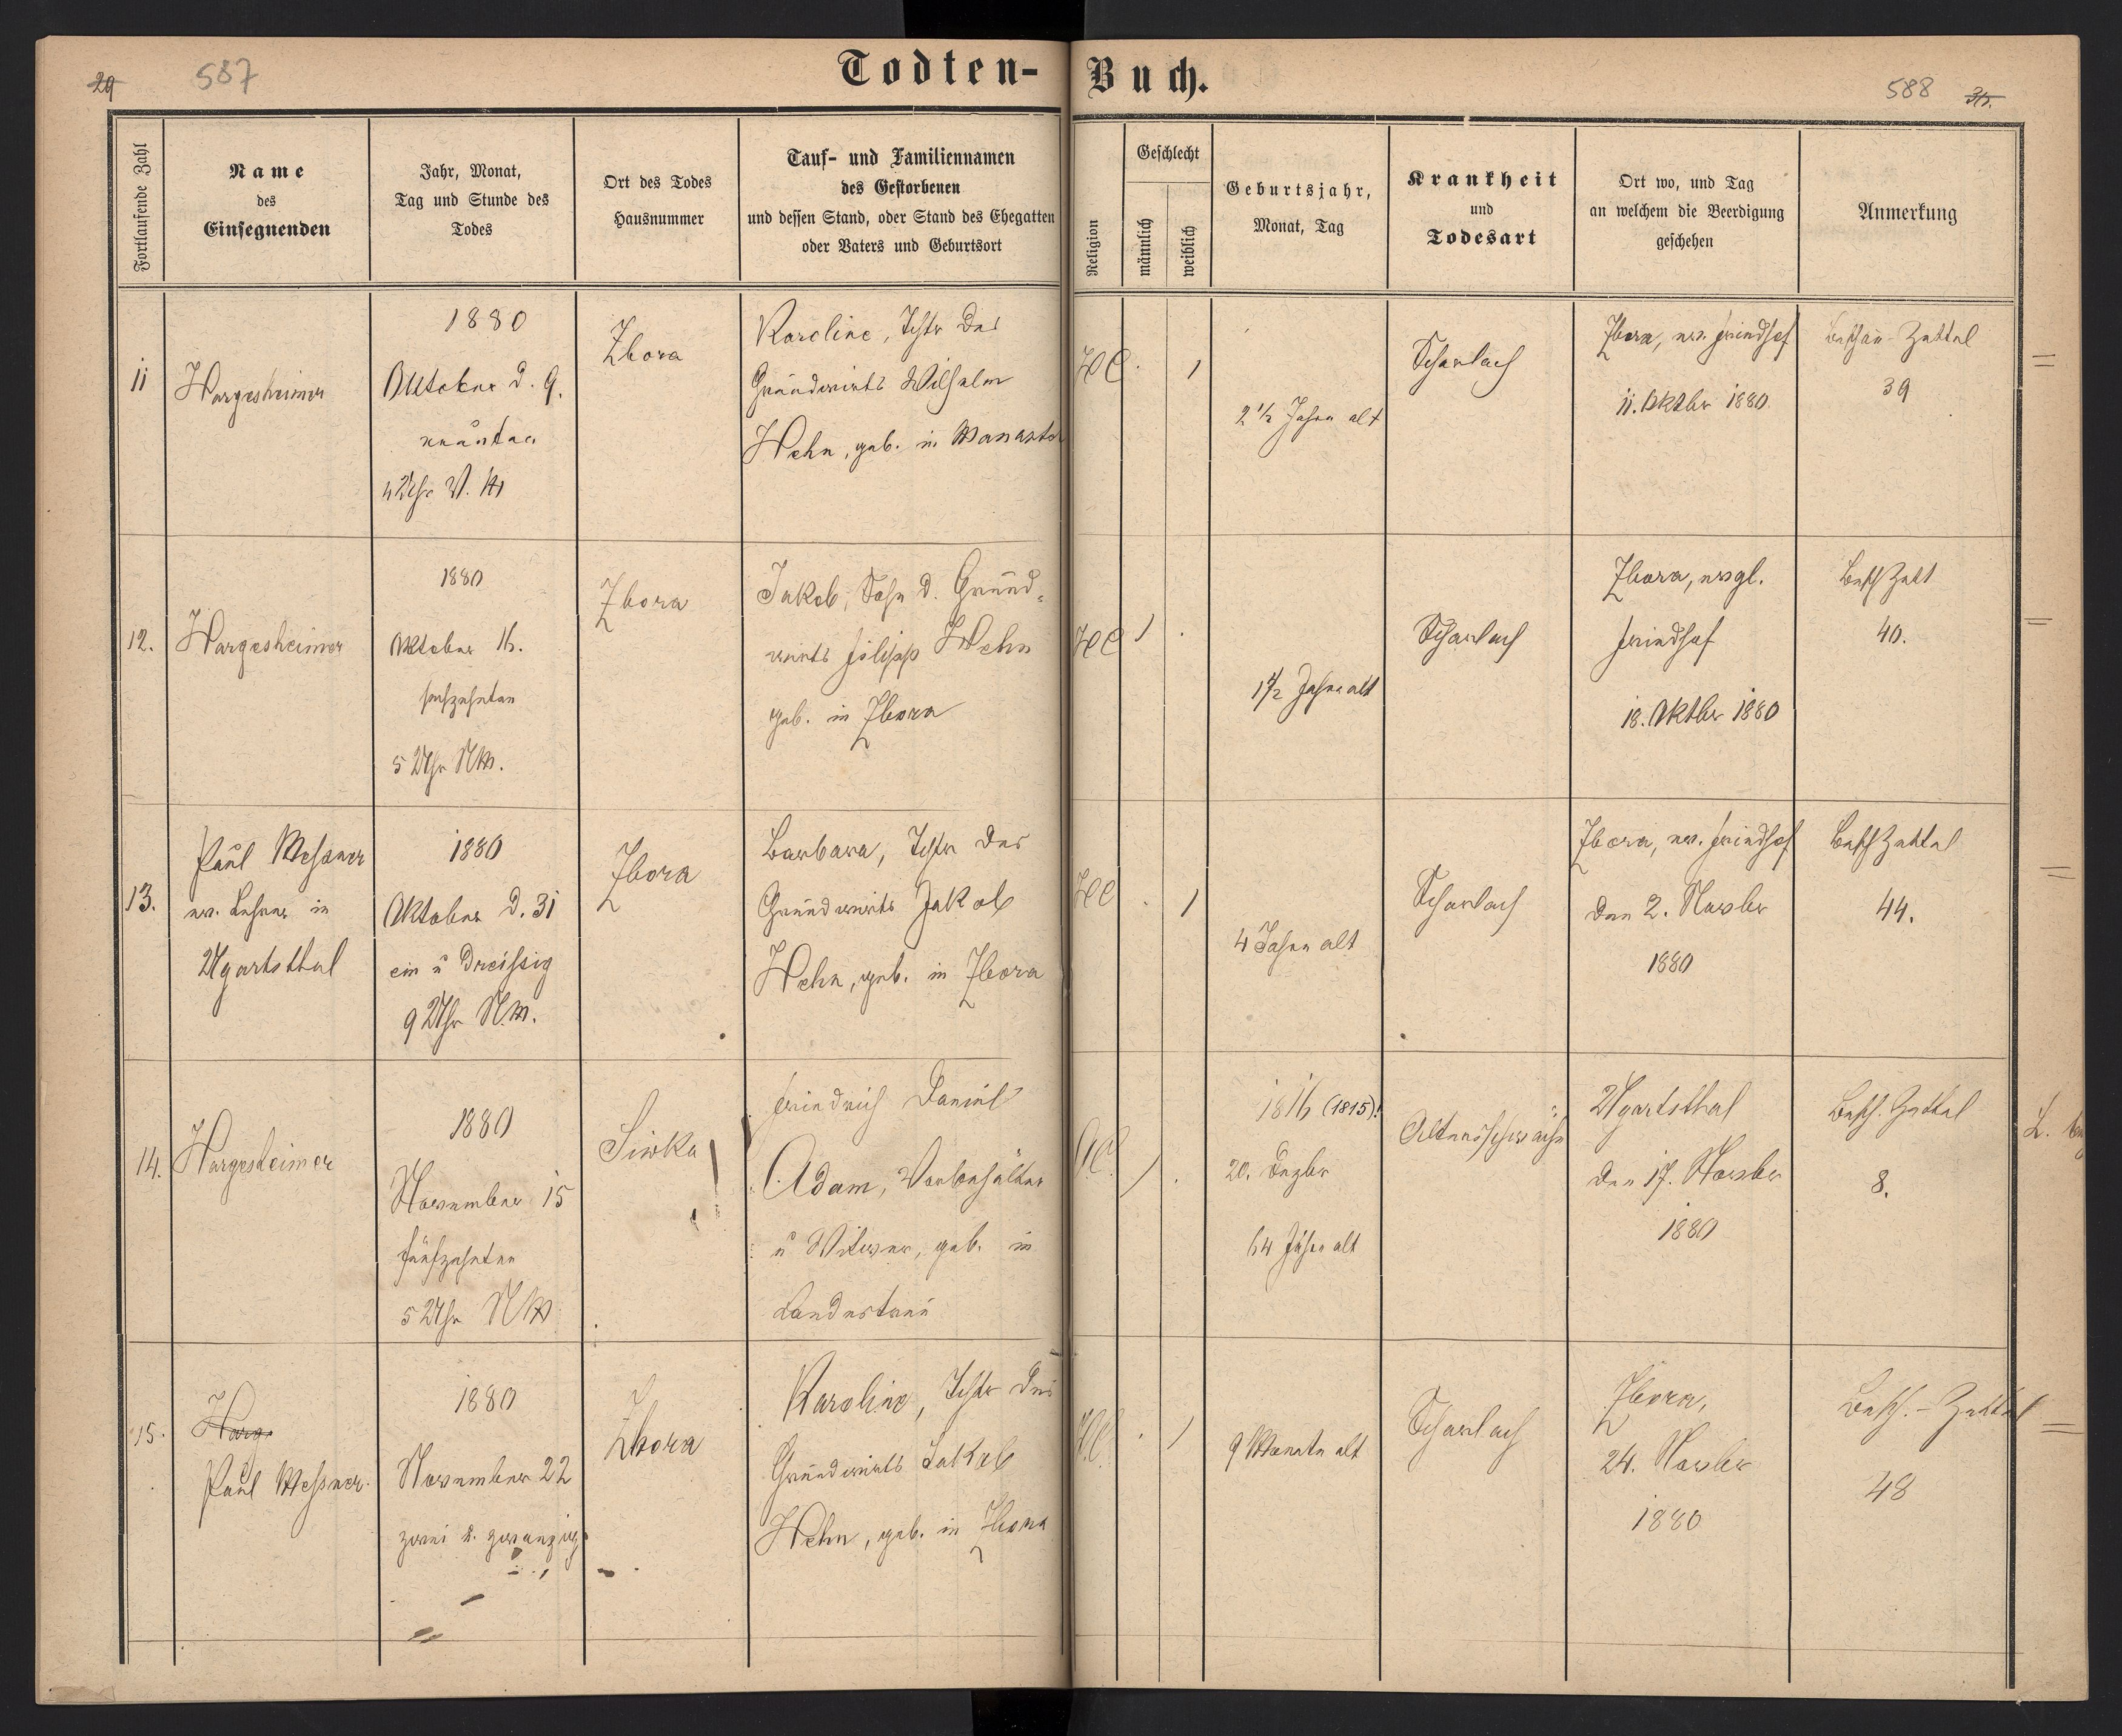 29
587
Todten-
Buch.
588
Fortlaufende Zahl
Name
des
Einsegnenden
Jahr, Monat,
Tag und Stunde des
Todes
Ort des Todes
Hausnummer
Tauf- und Familiennamen
des Gestorbenen
und dessen Stand, oder Stand des Ehegatten
oder Vaters und Geburtsort
Religion
Geschlecht
männlich
weiblich
Geburtsjahr,
Monat, Tag
Krankheit
und
Todesart
Ort wo, und Tag
an welchem die Beerdigung
geschehen
Anmerkung
11
Hargesheimer
1880
Oktober d. 9.
neunten
4 Uhr V. M
Zbora
Karoline, Tchtr des
Grundwirts Wilhelm
Hehn, geb. in Manaster
HC
1
2 1/2 Jahre alt
Scharlach
Zbora, ev. Friedhof
11. Oktbr 1880.
Beschau-Zettel
39
12.
Hargesheimer
1880
Oktober 16.
sechzehnten
5 Uhr NM.
Zbora
Jakob, Sohn d. Grund-
wirts Filipp Hehn
geb. in Zbora
HC
1
1 1/2 Jahre alt
Scharlach
Zbora, evgl.
Friedhof
18. Oktbr 1880
Besch Zett
40.
13.
Paul Messner
ev. Lehrer in
Ugartsthal
1880
Oktober d. 31
ein u Dreissig
9 Uhr N.M.
Zbora
Barbara, Tchtr des
Grundwirts Jakob
Hehn, geb. in Zbora
HC
1
4 Jahre alt
Scharlach
Zbora, ev. Friedhof
den 2. Novbr
1880
Besch Zettel
44.
14.
Hargesheimer
1880
November 15
fünfzehnten
5 Uhr NM
Siwka
Friedrich Daniel
Adam, Vorbehälter
u Witwer, geb. in
Landestreu
AC
1
1816 (1815)!
20. Dezbr
64 Jahre alt
Altersschwäche
Ugartsthal
den 17. Novbr
1880
Besch. Zettel
8.
15.
Harg.
Paul Messner
1880
November 22
zwei u. zwanzig
Zbora
Karoline, Tchtr des
Grundwirts Jakob
Hehn, geb. in Zbora
HC
1
9 Monate alt
Scharlach
Zbora,
24. Novbr
1880
Besch.-Zettel
48